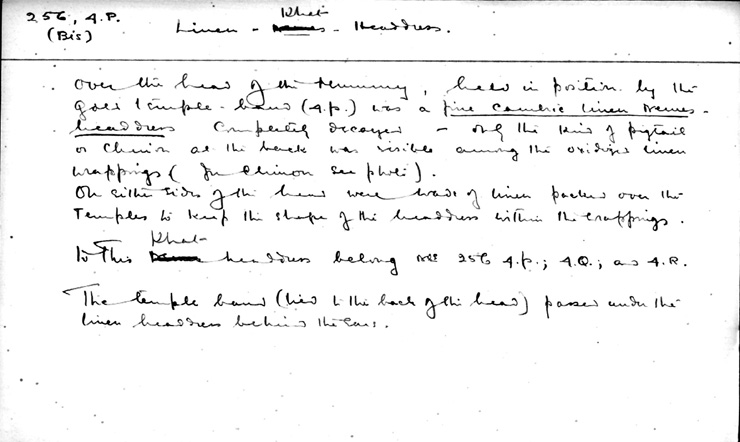 256, 4.P.
(Bis)
Linen - Khat - Headdress.
Over the head of the mummy, held in position by the
gold temple-band (4.p.) was a fine cambric linen Nemes-
headdress completely decayed - only the kind of pigtail
or Chinon at the back was visible among the oxidized linen
wrappings (for Chinon see photo).
On either sides of the head were wads of linen packed over the
Temples to keep the shape of the headdress within the wrappings.
To this Khat headdress belong Nos 256 4.p.; 4.Q.; and 4.R.
The temple band (tied to the back of the head) passed under the
linen headdress behind the ears.